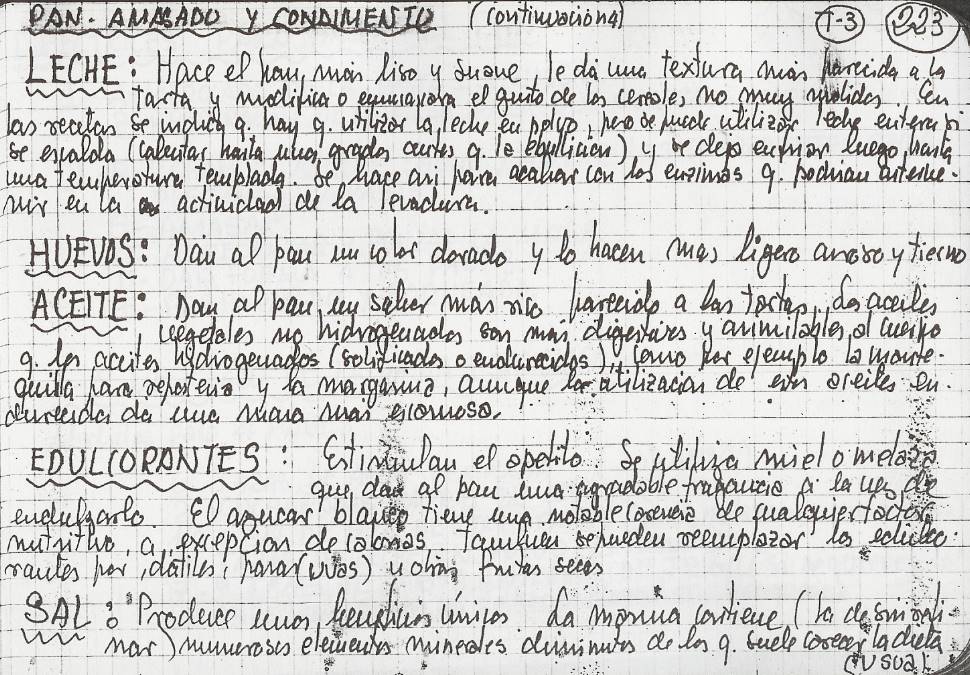 PAN. AMASADO Y CONDIMENTO (continuación 4) T-3 223
LECHE: Hace el pan, más liso y suave, le dá una textura más parecida a la
tarta y modifica o enmascara el gusto de los cereales no muy molidos. En
las recetas se indica q. hay q. utilizar la leche en polvo, pero se puede utilizar leche entera si
se escalda (calentar hasta unos grados antes q. la ebullición) y se deja enfriar luego, hasta
una temperatura templada. Se hace así para acabar con los enzimas q. podrían interve-
nir en la actividad de la levadura.
HUEVOS: Dan al pan un color dorado y lo hacen mas ligero y tierno
ACEITE: Dan al pan un sabor más rico parecido a las tortas, los aceites
vegetales no hidrogenados son más digestivos y asimilables al cuerpo
q. los aceites hidrogenados (solidificados o endurecidos), como por ejemplo la mante-
quilla para repostería y la margarina, aunque la utilización de estos aceites en-
durecidos da una masa más esponjosa.
EDULCORANTES: Estimulan el apetito. Se utiliza miel o melaza
que dan al pan una agradable fragancia a la vez de
endulzarlo. El azucar blanco tiene una notable carencia de cualquier factor
nutritivo, a excepción de calorías. Tambien se pueden reemplazar los edulco-
rantes por dátiles, pasas (uvas) u otras frutas secas
SAL: Produce unos beneficios únicos. La marina contiene (la de sin refi-
nar) numerosos elementos minerales diminutos de los q. suele carecer la dieta
usual.